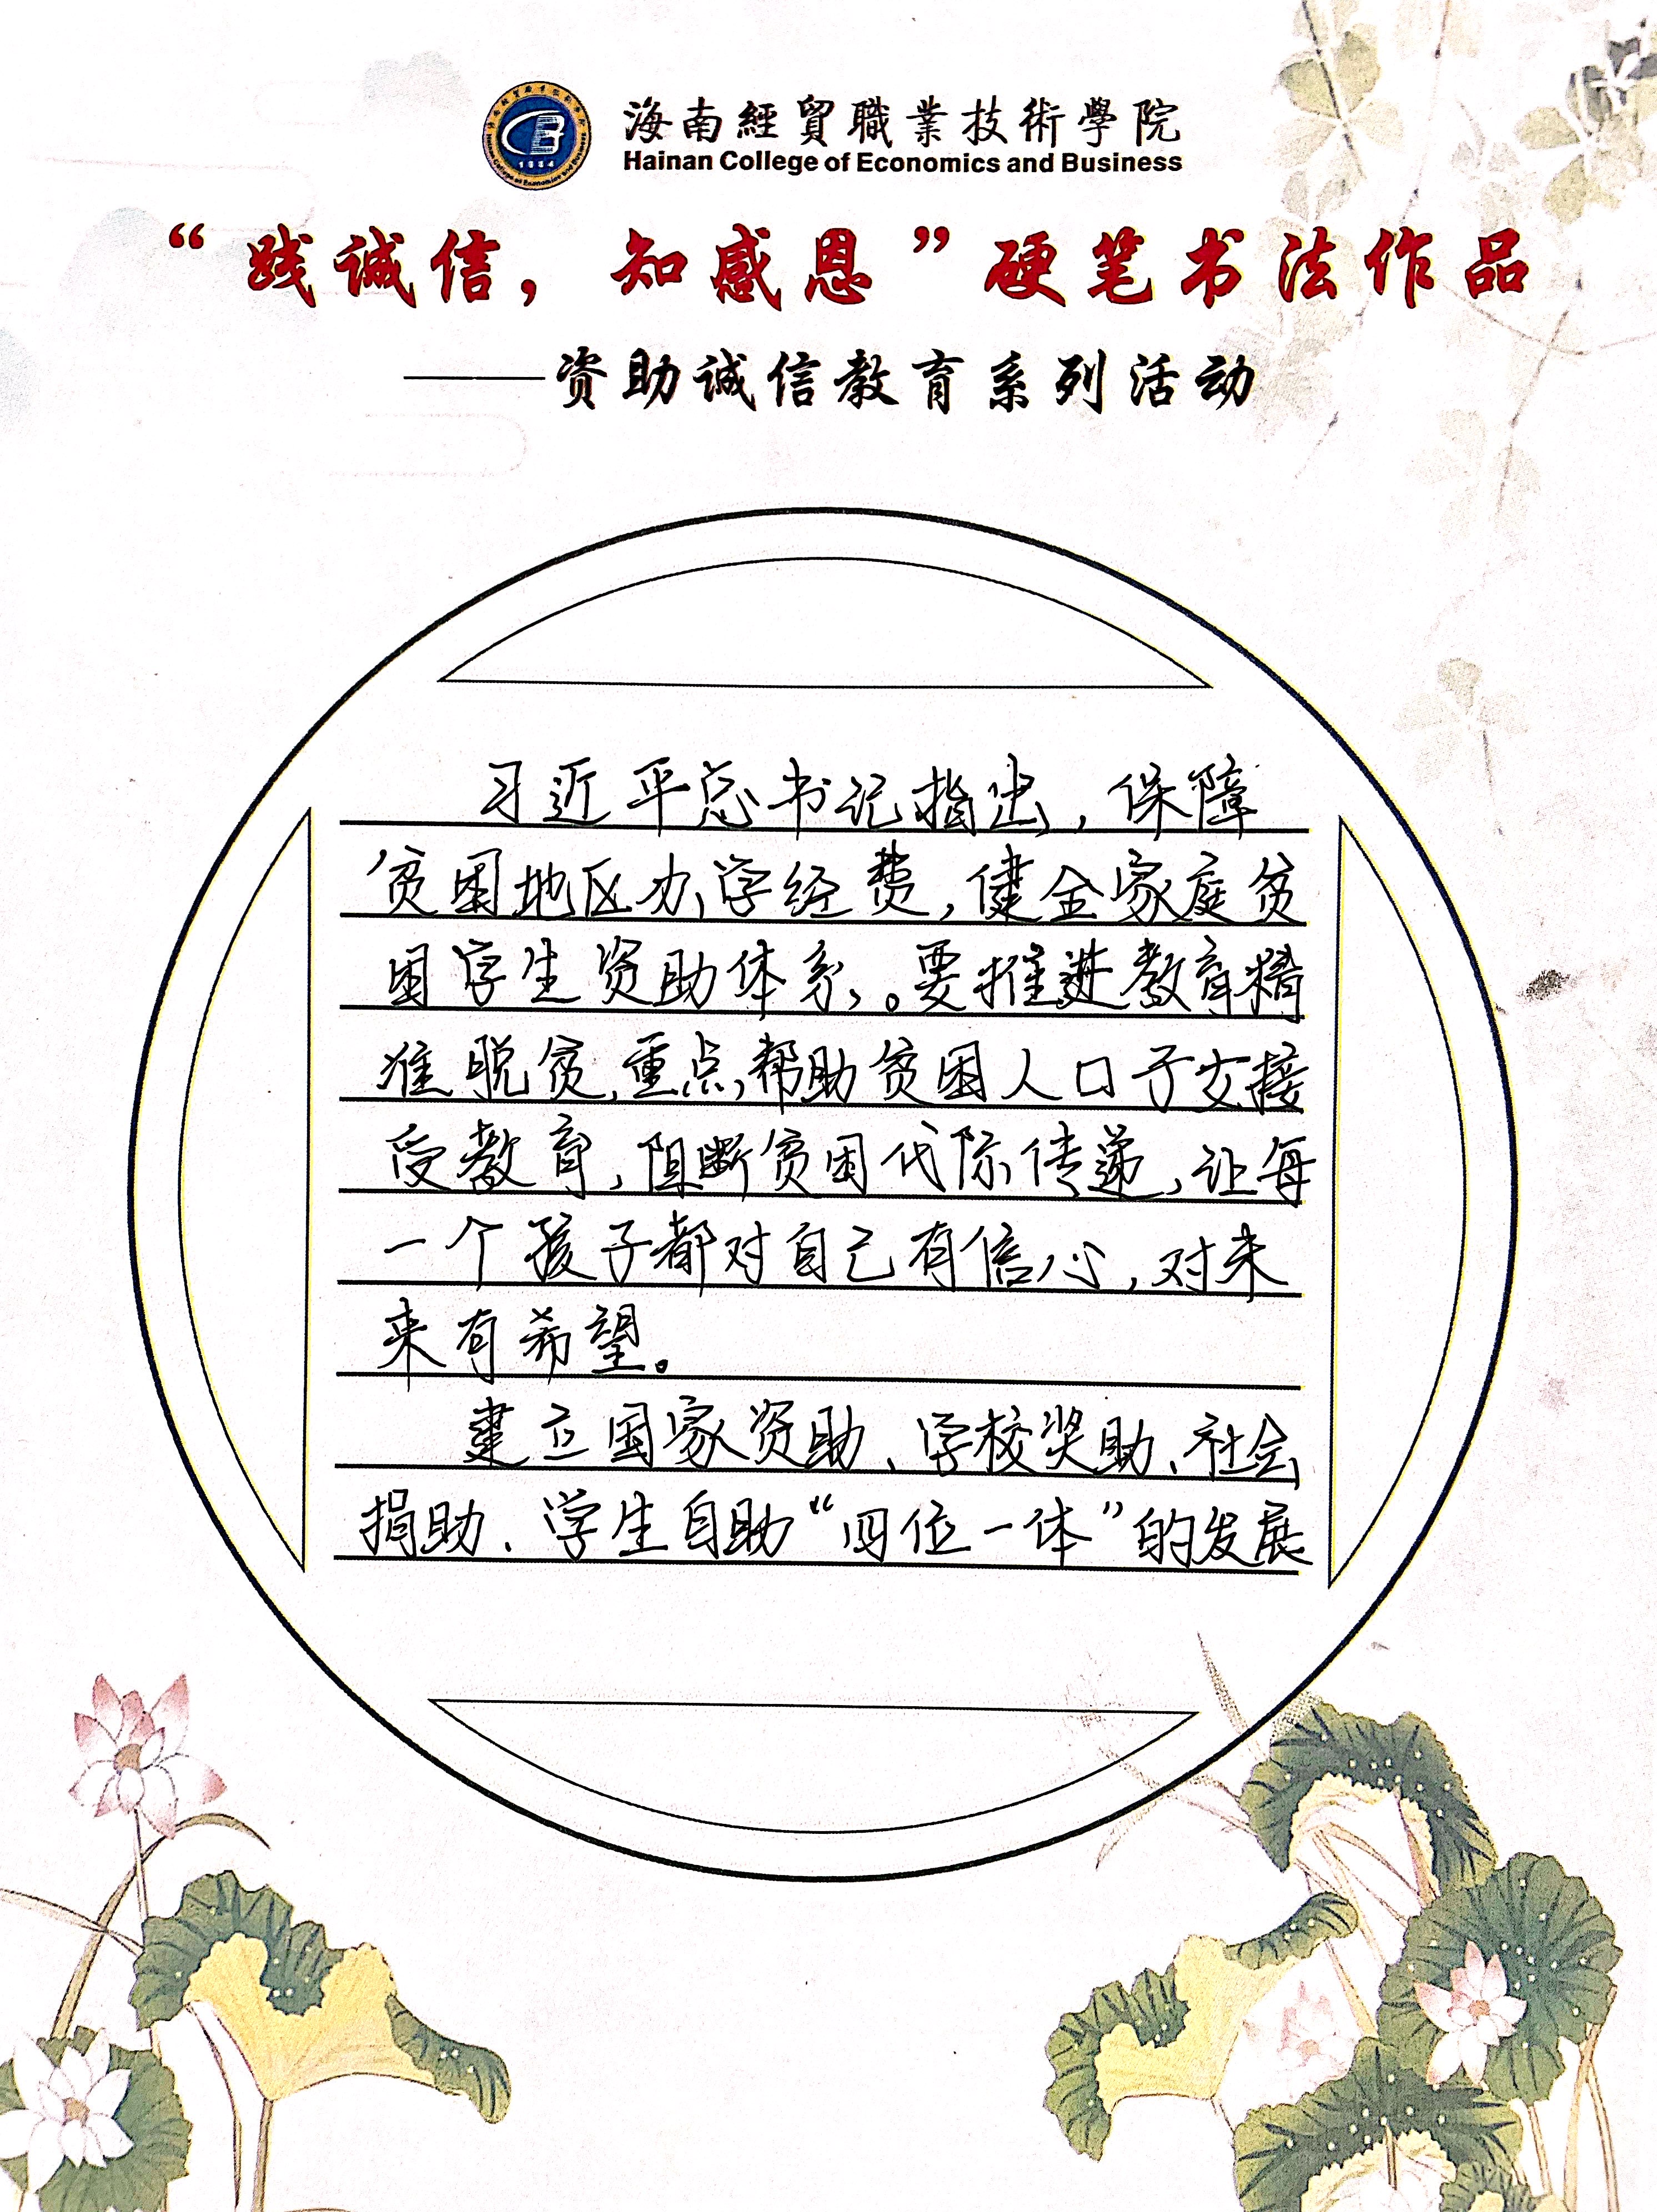 海南經貿職業技術學院
Hainan College of Economics and Business
1984
“践诚信，知感恩”硬笔书法作品
——资助诚信教育系列活动
习近平总书记指出，保障
贫困地区办学经费，健全家庭贫
困学生资助体系。要推进教育精
准脱贫，重点帮助贫困人口子女接
受教育，阻断贫困代际传递，让每
一个孩子都对自己有信心，对未
来有希望。
建立国家资助、学校奖助、社会
捐助、学生自助“四位一体”的发展